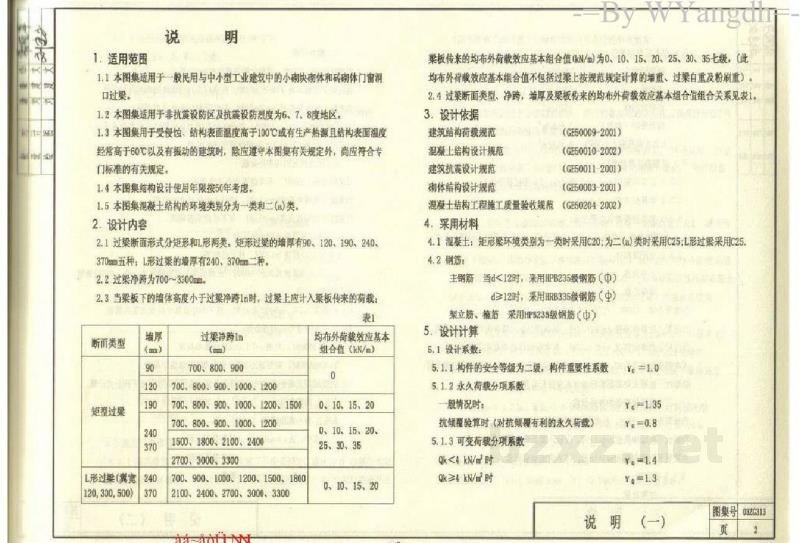 By WYangdh
说 明
1. 适用范围
1.1 本图集适用于一般民用与中小型工业建筑中的小砌块砌体和砖砌体门窗洞
口过梁。
1.2 本图集适用于非抗震设防区及抗震设防烈度为6、7、8度地区。
1.3 本图集用于受侵蚀、结构表面温度高于100℃或有生产热源且结构表面温度
经常高于60℃以及有振动的建筑时，除应遵守本图集有关规定外，尚应符合专
门标准的有关规定。
1.4 本图集结构设计使用年限按50年考虑。
1.5 本图集混凝土结构的环境类别分为一类和二(a)类。
2. 设计内容
2.1 过梁断面形式分矩形和L形两类。矩形过梁的墙厚有90、120、190、240、
370mm五种；L形过梁的墙厚有240、370mm二种。
2.2 过梁净跨为700～3300mm。
2.3 当梁板下的墙体高度小于过梁净跨ln时，过梁上应计入梁板传来的荷载；
表1
断面类型 墙厚(mm) 过梁净跨ln(mm) 均布外荷载效应基本组合值 (kN/m)
矩型过梁
90 700、800、900 0
120 700、800、900、1000、1200
190 700、800、900、1000、1200、1500 0、10、15、20
240 370 700、800、900、1000、1200
1500、1800、2100、2400
2700、3000、3300
0、10、15、20、
25、30、35
L形过梁(翼宽 240 700、900、1000、1200、1500、1800
120,300,500) 370 2100、2400、2700、3000、3300
0、10、15、20
梁板传来的均布外荷载效应基本组合值(kN/m)为0、10、15、20、25、30、35七级。(此
均布外荷载效应基本组合值不包括过梁上按规范规定计算的墙重、过梁自重及粉刷重)。
2.4 过梁断面类型、净跨、墙厚及梁板传来的均布外荷载效应基本组合值组合关系见表1。
3. 设计依据
建筑结构荷载规范 (GB50009-2001)
混凝土结构设计规范 (GB50010-2002)
建筑抗震设计规范 (GB50011-2001)
砌体结构设计规范 (GB50003-2001)
混凝土结构工程施工质量验收规范 (GB50204-2002)
4. 采用材料
4.1 混凝土：矩形梁环境类别为一类时采用C20;为二(a)类时采用C25;L形过梁采用C25.
4.2 钢筋:
主钢筋 当d<12时，采用HPB235级钢筋(ф)
d≥12时，采用HRB335级钢筋(ф)
架立筋、箍筋 采用HPB235级钢筋(ф)
5. 设计计算
5.1 设计系数:
5.1.1 构件的安全等级为二级，构件重要性系数 γ₀ =1.0
5.1.2 永久荷载分项系数
一般情况时: γG=1.35
抗倾覆验算时(对抗倾覆有利的永久荷载) γG=0.8
5.1.3 可变荷载分项系数
Qk<4 kN/m²时 γQ=1.4
Qk≥4 kN/m²时 γQ=1.3
bzxz.net
说 明 (一)
图集号 03ZG313
页 2